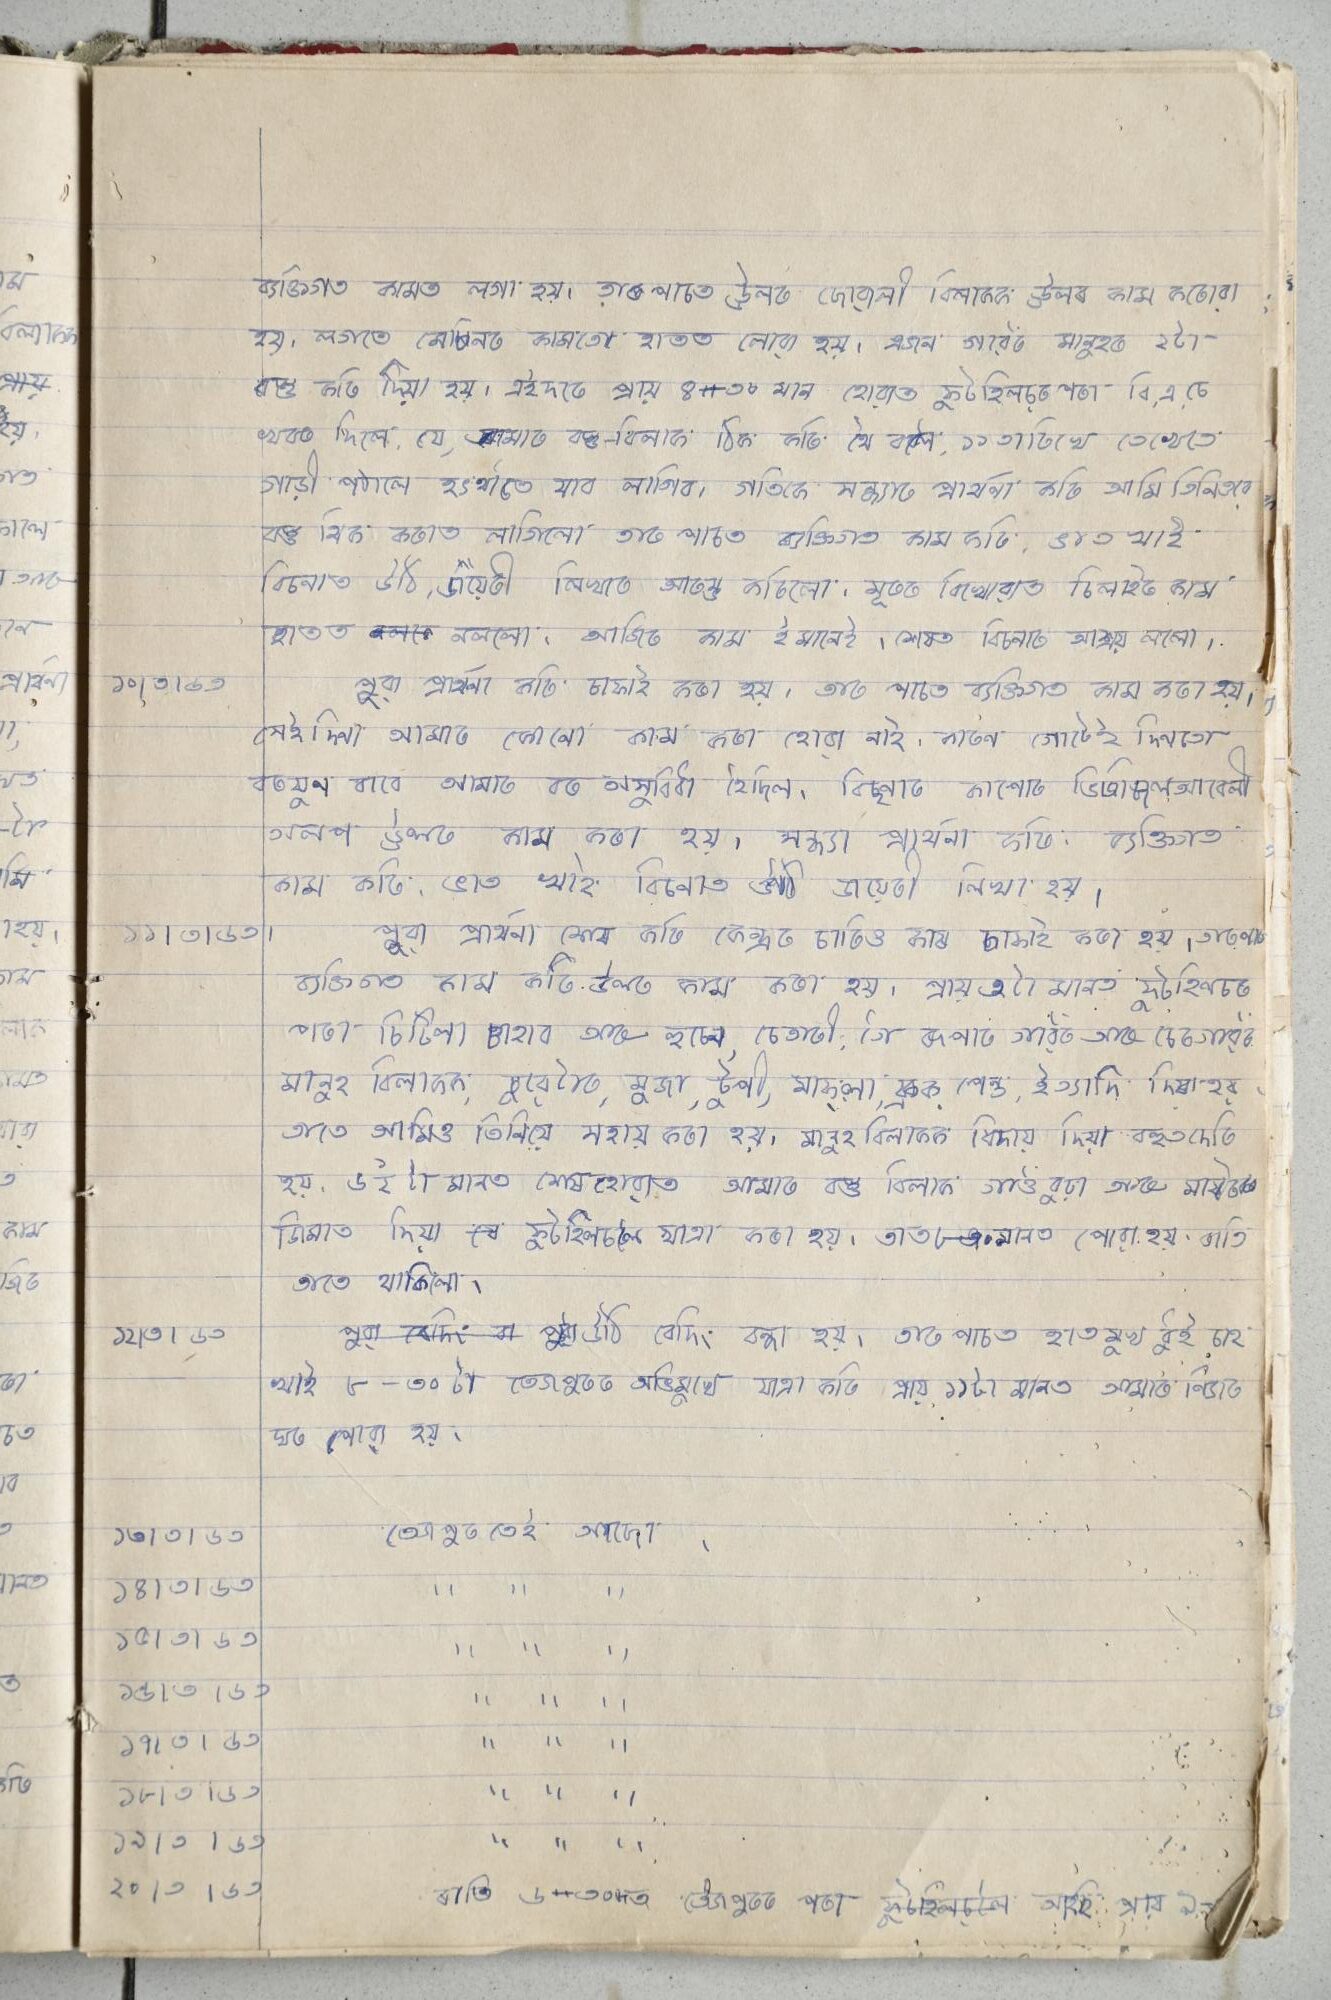 ব্যক্তিগত কামত লগা হয়। তাৰ পাচত উলৰ জোৰালী বিলাকক উলৰ কাম কৰোৱা
হয়, লগতে মেচিনৰ কামতো হাতত লোৱা হয়। এজন গাৱঁৰ মানুহৰ ২টা
বস্তু কৰি দিয়া হয়। এইদৰে প্ৰায় ৪–৩০ মান হোৱাত ফুটহিলচৰ পৰা বি,এ,চে
খবৰ দিলে, যে, আমাৰ বস্তু বিলাক ঠিক কৰি থৈ বলৈ, ১১ তাৰিখে তেখেতে
গাড়ী পঠালে হঠাৎতে যাব লাগিব। গতিকে সন্ধ্যাৰ প্ৰাৰ্থনা কৰি আমি তিনিওৱে
বস্তু ঠিক কৰাত লাগিলো তাৰ পাচত ব্যক্তিগত কাম কৰি, ভাত খাই
বিচনাত উঠি, ডায়েৰী লিখাৰ আৰম্ভ কৰিলো। মূৰৰ বিষোৱাত চিলাইৰ কাম
হাতত নললো। আজিৰ কাম ইমানেই। শেষত বিচনাৰ আশ্ৰয় ললো।
১০।৩।৬৩ পুৱা প্ৰাৰ্থনা কৰি চাফাই কৰা হয়। তাৰ পাচত ব্যক্তিগত কাম কৰা হয়।
সেইদিনা আমাৰ কোনো কাম কৰা হোৱা নাই। কাৰণ গোটেই দিনতো
বৰষুন বাবে আমাৰ বৰ অসুবিধা হৈছিল। বিচনাৰ কাপোৰ তিতিছিল আবেলী
অলপ উলৰ কাম কৰা হয়। সন্ধ্যা প্ৰাৰ্থনা কৰি। ব্যক্তিগত
কাম কৰি, ভাত খাই বিচনাত উঠি ডায়েৰী লিখা হয়।
১১।৩।৬৩। পুৱা প্ৰাৰ্থনা শেষ কৰি কেন্দ্ৰৰ চাৰিও কাষ চাফাই কৰা হয়। তাৰপাচত
ব্যক্তিগত কাম কৰি উলৰ কাম কৰা হয়। প্ৰায় ৩ টা মানত ফুটহিলচৰ
পৰা চিটিলা চাহাব আৰু হুচেন, চেৰাৰী, গৈ ৰূপাৰ গাৱঁৰ আৰু চেৰ গাৱঁৰ
মানুহ বিলাকক, চুৱেটাৰ, মুজা, টুপী, মাফলা, ফ্ৰক, পেন্ত, ইত্যাদি দিয়া হয়।
তাতে আমিও তিনিয়ে সহায় কৰা হয়। মানুহ বিলাকক বিদায় দিয়া বহুত দেৰি
হয়। ৬ই টা মানত শেষ হোৱাত আমাৰ বস্তু বিলাক গাওঁ বুঢ়া আৰু
জিমাত দিয়া ফুটহিলচলৈ যাত্ৰা কৰা হয়। তাত ৮–৩০ মানত পোৱা হয়। ৰাতি
তাতে থাকিলো।
১২।৩।৬৩ পুৱা বেদিং বা পুৱা উঠি বেদিং বন্ধা হয়। তাৰ পাচত হাত মুখ ধুই চাহ
খাই ৮–৩০ টা তেজপুৰৰ অভিমুখে যাত্ৰা কৰি প্ৰায় ১১টা মানত আমাৰ নিজৰ
ঘৰ পোৱা হয়।
১৩।৩।৬৩ তেজপুৰতেই আছো।
১৪।৩।৬৩ " " "
১৫।৩।৬৩ " " "
১৬।৩।৬৩ " " "
১৭।৩।৬৩ " " "
১৮।৩।৬৩ " " "
১৯।৩।৬৩ " " "
২০।৩।৬৩ ৰাতি ৬–৩০ত তেজপুৰৰ পৰা ফুটহিলচলৈ আহি প্ৰায়